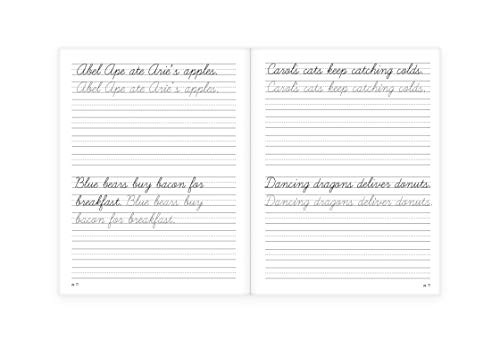 Abel Ape ate Arie's apples.
Abel Ape ate Arie's apples.
Blue bears buy bacon for
breakfast. Blue bears buy
bacon for breakfast.
Carol's cats keep catching colds.
Carol's cats keep catching colds.
Dancing dragons deliver donuts.
Dancing dragons deliver donuts.